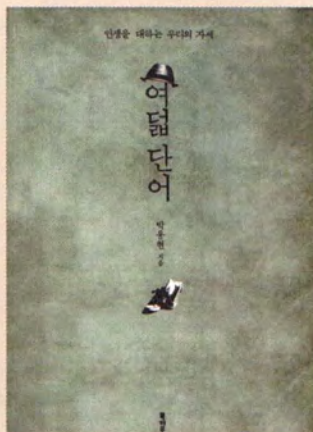 인생을 대하는 우리의 자세
여덟 단어
박웅현 지음
북하우스